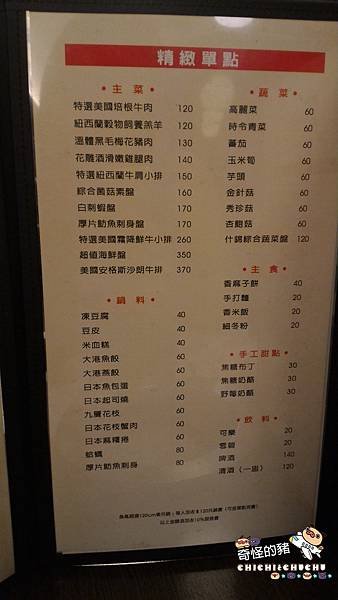 精緻單點
• 主 菜 •
特選美國培根牛肉 120
紐西蘭穀物飼養羔羊 120
溫體黑毛梅花豬肉 130
花雕酒滑嫩雞腿肉 140
特選紐西蘭牛肩小排 150
綜合菌菇素盤 160
白刺蝦盤 170
厚片魴魚刺身盤 170
特選美國霜降鮮牛小排 260
超值海鮮盤 350
美國安格斯沙朗牛排 370
• 鍋 料 •
凍豆腐 40
豆皮 40
米血糕 40
大港魚餃 60
大港燕餃 60
日本魚包蛋 60
日本起司燒 60
九孔花枝 60
日本花枝蟹肉 60
日本麻糬捲 60
蛤蠣 80
厚片魴魚刺身 80
• 蔬 菜 •
高麗菜 60
時令青菜 60
蕃茄 60
玉米筍 60
芋頭 60
金針菇 60
秀珍菇 60
杏鮑菇 60
什錦綜合蔬菜盤 120
• 主 食 •
香麻子餅 40
手打麵 20
香米飯 20
細冬粉 20
• 手工甜點 •
焦糖布丁 30
焦糖奶酪 30
野莓奶酪 30
• 飲 料 •
可樂 20
雪碧 20
啤酒 140
清酒（一壺） 120
以上金額須加收10%服務費
奇怪的豬
CHICHI&CHUCHU